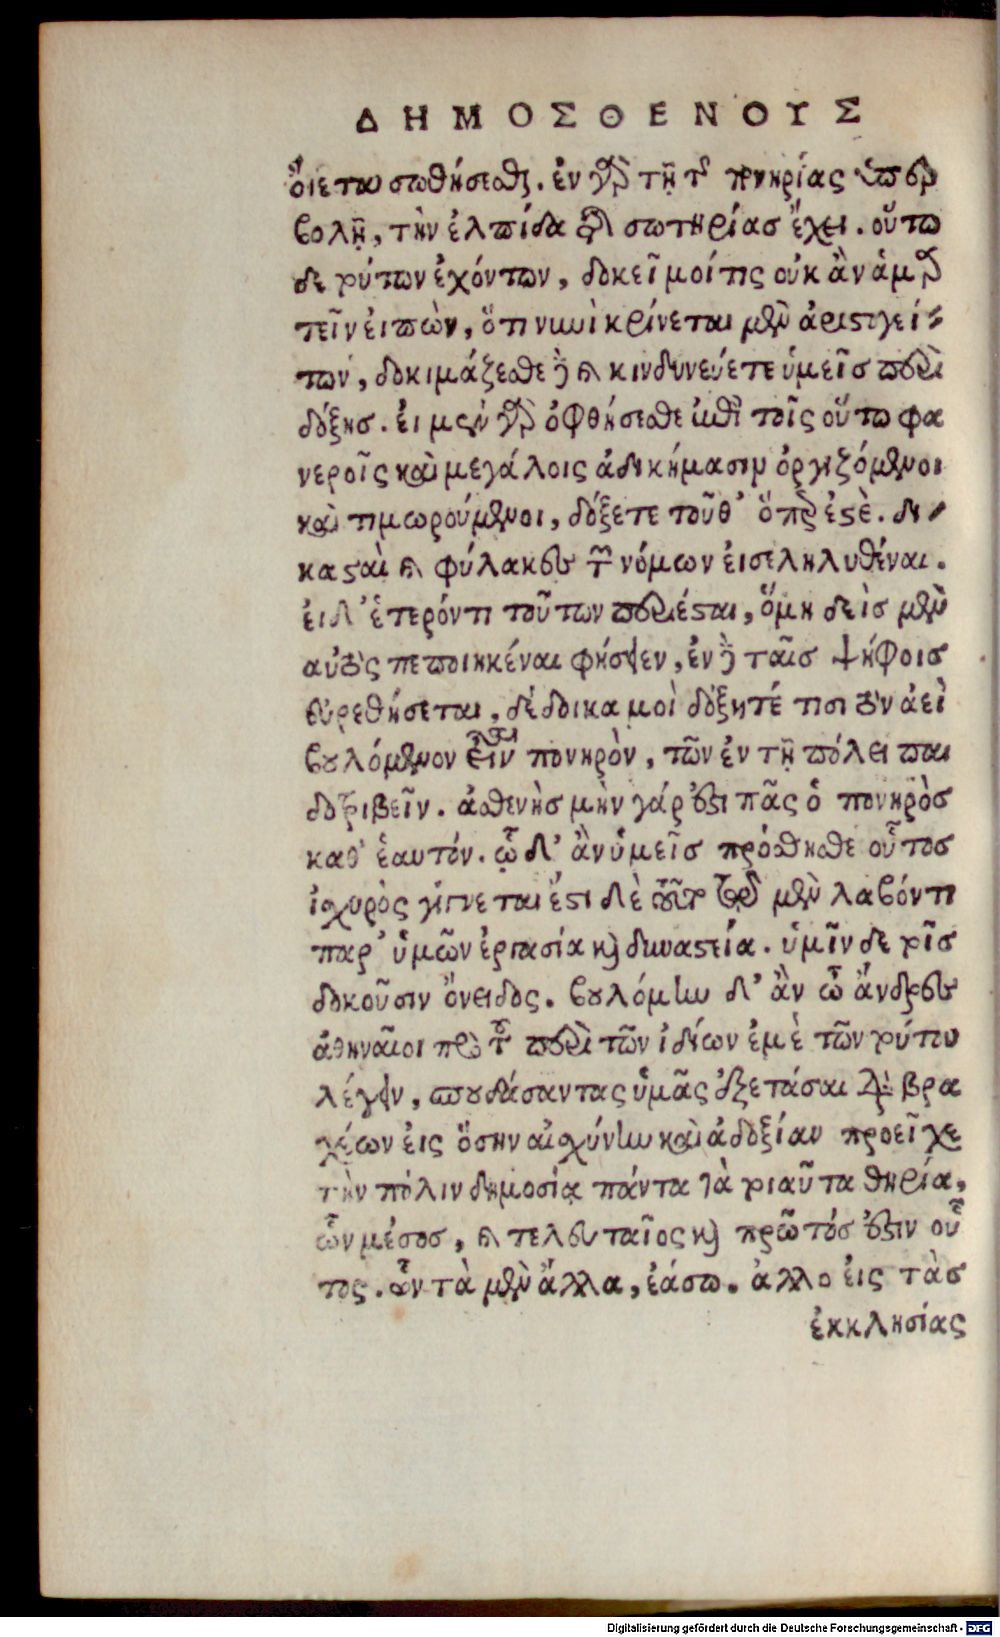 ΔΗΜΟΣΘΕΝΟΥΣ
ὄιεται σωθήσεσθαι. ἐν γὰρ τῇ τῆς πονηρίας ὑπερ
βολῇ, τὴν ἐλπίδα τῆς σωτηρίας ἔχει. οὕτω
δε τούτων ἐχόντων, δοκεῖ μοί τις οὐκ ἂν ἁμαρ
τεῖν ἐιπὼν, ὅτι νυνὶ κρίνεται μὲν ἀριστογεί-
των, δοκιμάζεσθε δὲ καὶ κινδυνεύετε ὑμεῖς περὶ
δόξης. ἐι μὲν γὰρ ὀφθήσεσθε ἐπὶ τοῖς οὕτω φα
νεροῖς καὶ μεγάλοις ἀδικήμασιν ὀργιζόμενοι
καὶ τιμωρούμενοι, δόξετε τοῦθ' ὅπερ ἐστὲ. δι-
καςαὶ καὶ φύλακες τῶν νόμων ἐισεληλυθέναι.
ἐι δ' ἑτερόν τι τούτων περιέσται, ὅ μηδεὶς μὲν
αὐτὸς πεποιηκέναι φήσειεν, ἐν δὲ ταῖς ψήφοις
εὑρεθήσεται, δέδοικα μοὶ δόξητέ τισι τὸν ἀεὶ
βουλόμενον εἶναι πονηρὸν, τῶν ἐν τῇ πόλει παι
δοτριβεῖν. ἀσθενὴς μὴν γάρ ἐστι πᾶς ὁ πονηρὸς
καθ' ἑαυτόν. ᾧ δ' ἂν ὑμεῖς πρόσθησθε οὗτος
ἰσχυρὸς γίγνεται ἔστι δὲ τοῦτο τῷ μὲν λαβόντι
παρ' ὑμῶν ἐργασία καὶ δυναστεία. ὑμῖν δε τοῖς
δοκοῦσιν ὄνειδος. βουλόμην δ' ἂν ὦ ἄνδρες
ἀθηναῖοι πρὸ τοῦ περὶ τῶν ἰδίων ἐμὲ τῶν τούτου
λέγειν, σπουδάσαντας ὑμᾶς ἐξετάσαι διὰ βρα
χέων ἐις ὅσην αἰσχύνην καὶ ἀδοξίαν προεῖχε
τὴν πόλιν δημοσίᾳ πάντα τὰ τοιαῦτα θηρία,
ὧν μέσος, καὶ τελευταῖος καὶ πρῶτός ἐστιν οὗ
τος. ὧν τὰ μὲν ἄλλα, ἐάσω. ἀλλο ἐις τὰς
ἐκκλησίας
Digitalisierung gefördert durch die Deutsche Forschungsgemeinschaft - DFG